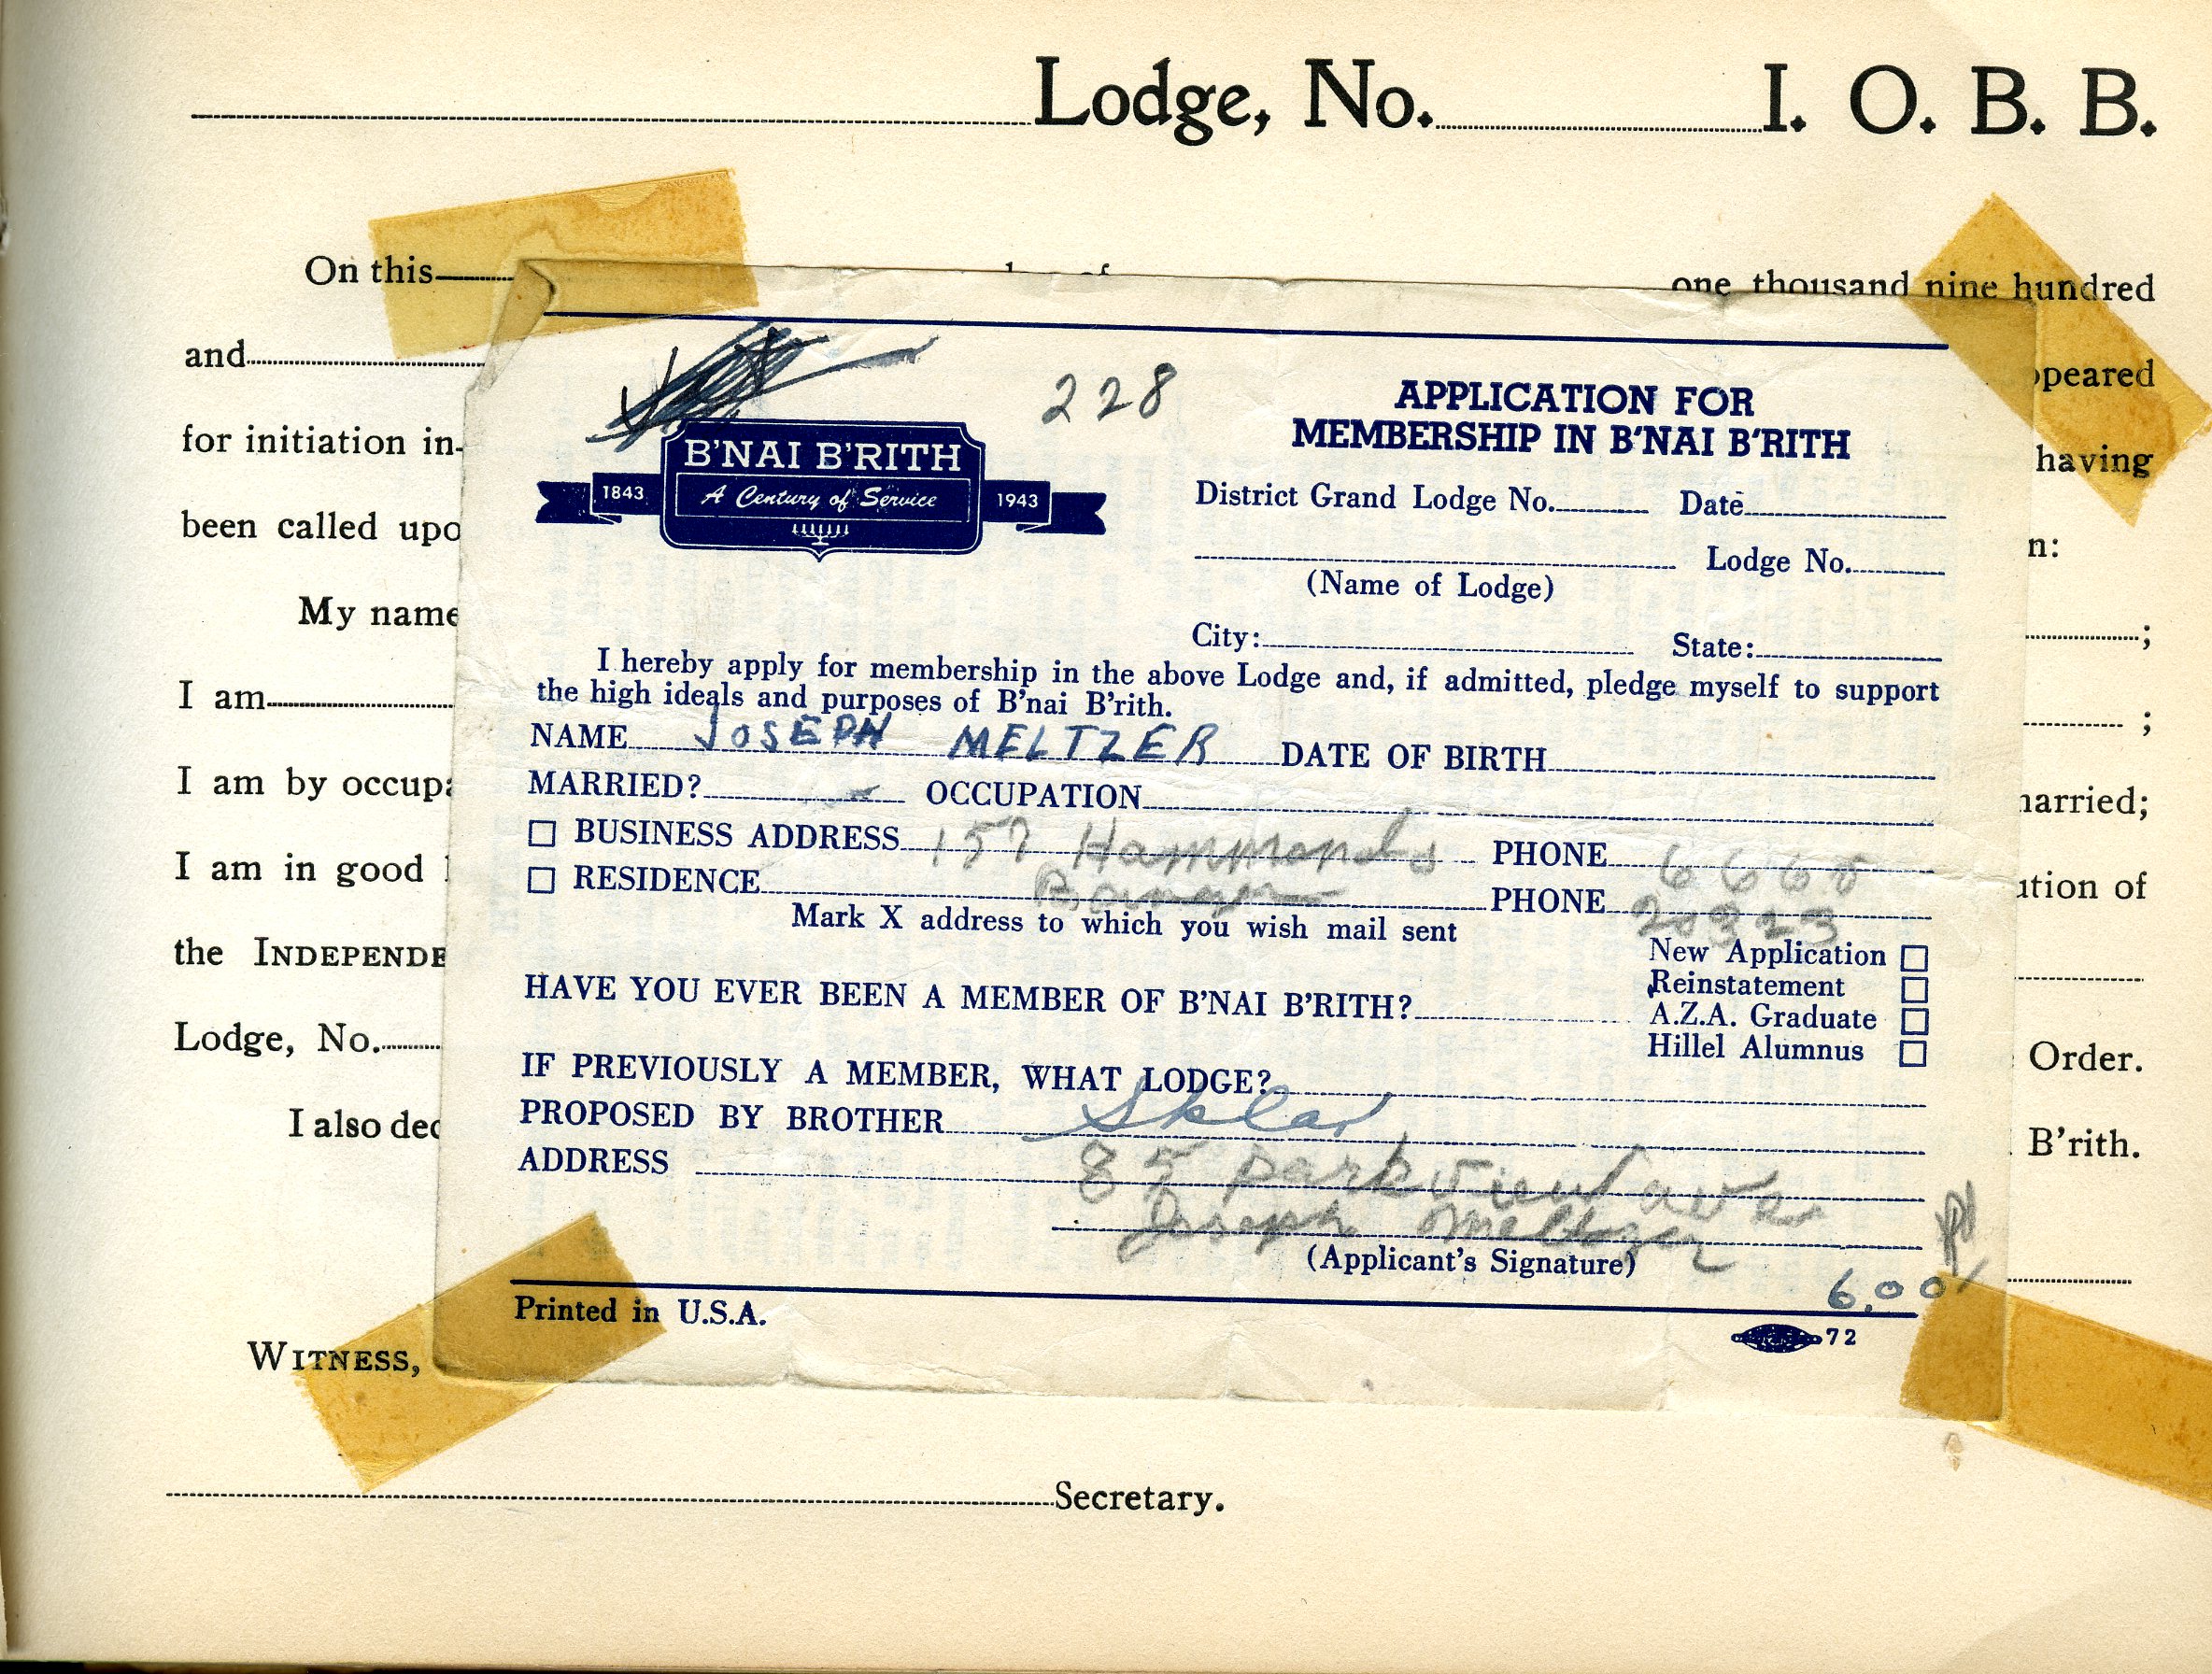 Lodge, No. I. O. B. B.
On this one thousand nine hundred
and ppeared
for initiation in having
been called upo n:
My name ;
I am ;
I am by occupa married;
I am in good ution of
the INDEPENDE
Lodge, No. Order.
I also dec B'rith.
WITNESS,
Secretary.
228
B'NAI B'RITH
1843 A Century of Service 1943
APPLICATION FOR
MEMBERSHIP IN B'NAI B'RITH
District Grand Lodge No. Date
Lodge No.
(Name of Lodge)
City: State:
I hereby apply for membership in the above Lodge and, if admitted, pledge myself to support
the high ideals and purposes of B'nai B'rith.
NAME JOSEPH MELTZER DATE OF BIRTH
MARRIED? OCCUPATION
BUSINESS ADDRESS 157 Hammond s PHONE 6660
RESIDENCE Bangor PHONE 20323
Mark X address to which you wish mail sent
New Application
Reinstatement
HAVE YOU EVER BEEN A MEMBER OF B'NAI B'RITH?
A.Z.A. Graduate
Hillel Alumnus
IF PREVIOUSLY A MEMBER, WHAT LODGE?
PROPOSED BY BROTHER Sklar
ADDRESS 85 parkview ave
Joseph Meltzer
(Applicant's Signature)
pd
6.00
Printed in U.S.A.
72